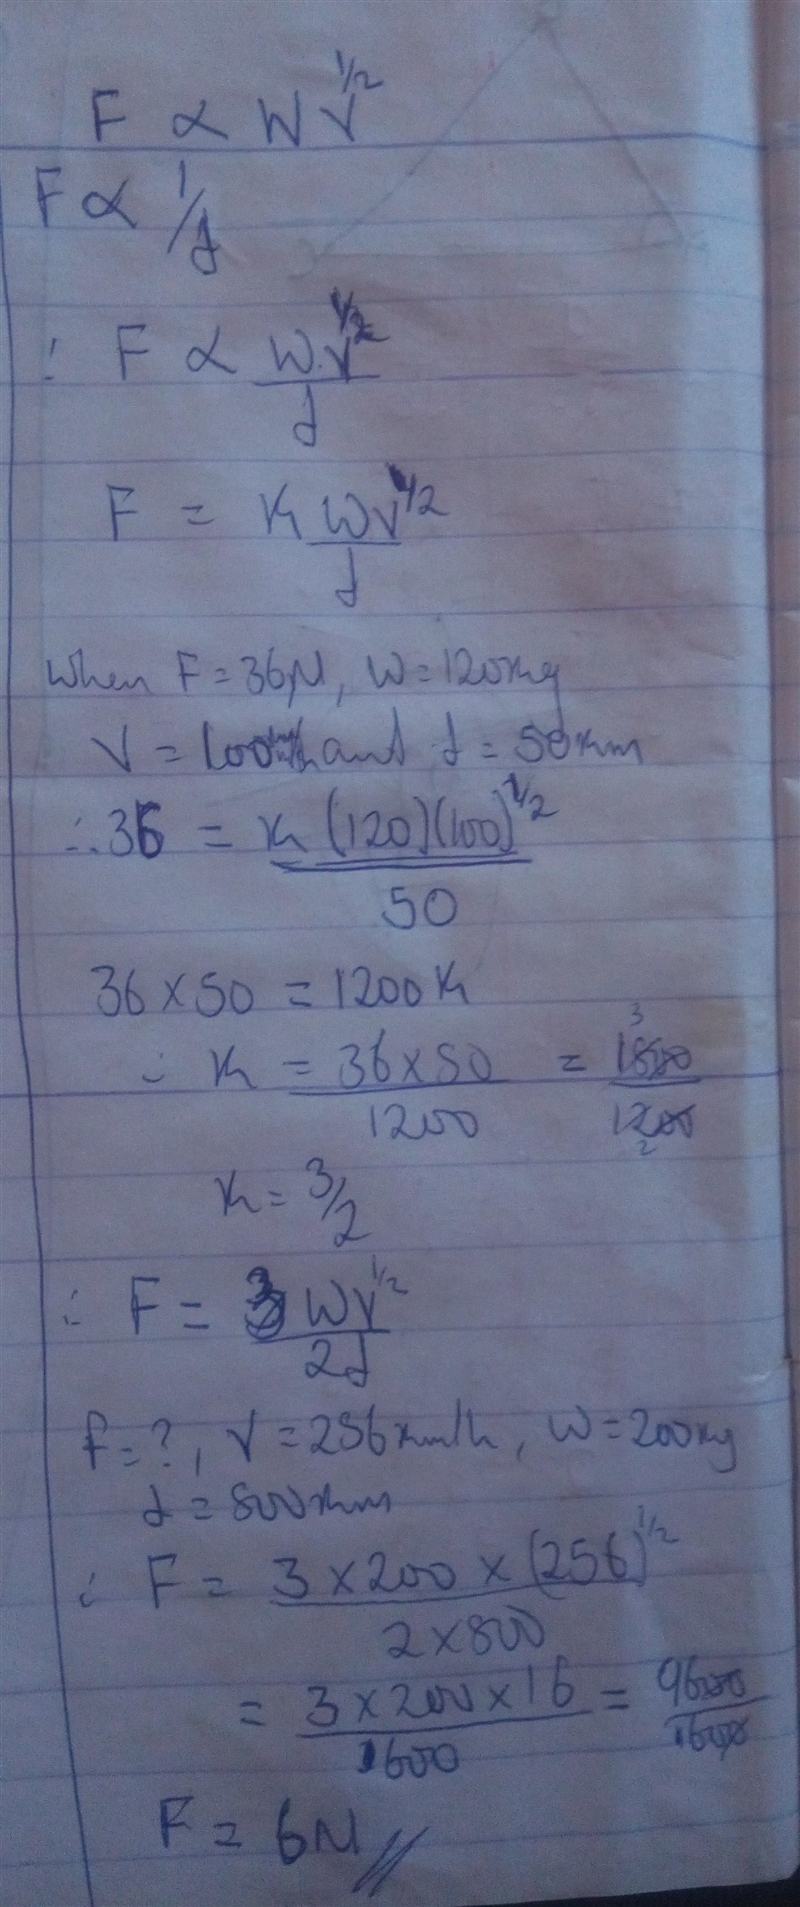 F ∝ W V^1/2
F ∝ 1/d
∴ F ∝ W.V^1/2 / d
F = K WV^1/2 / d
When F = 36N, W = 120kg
V = 100km/h and d = 50km
∴ 36 = K (120)(100)^1/2 / 50
36 × 50 = 1200K
∴ K = 36 × 50 / 1200 = 1800 / 1200
3
2
K = 3/2
∴ F = 3 WV^1/2 / 2d
F = ?, V = 256km/h, W = 200kg
d = 800km
∴ F = 3 × 200 × (256)^1/2 / 2 × 800
= 3 × 200 × 16 / 1600 = 9600 / 1600
F = 6N //